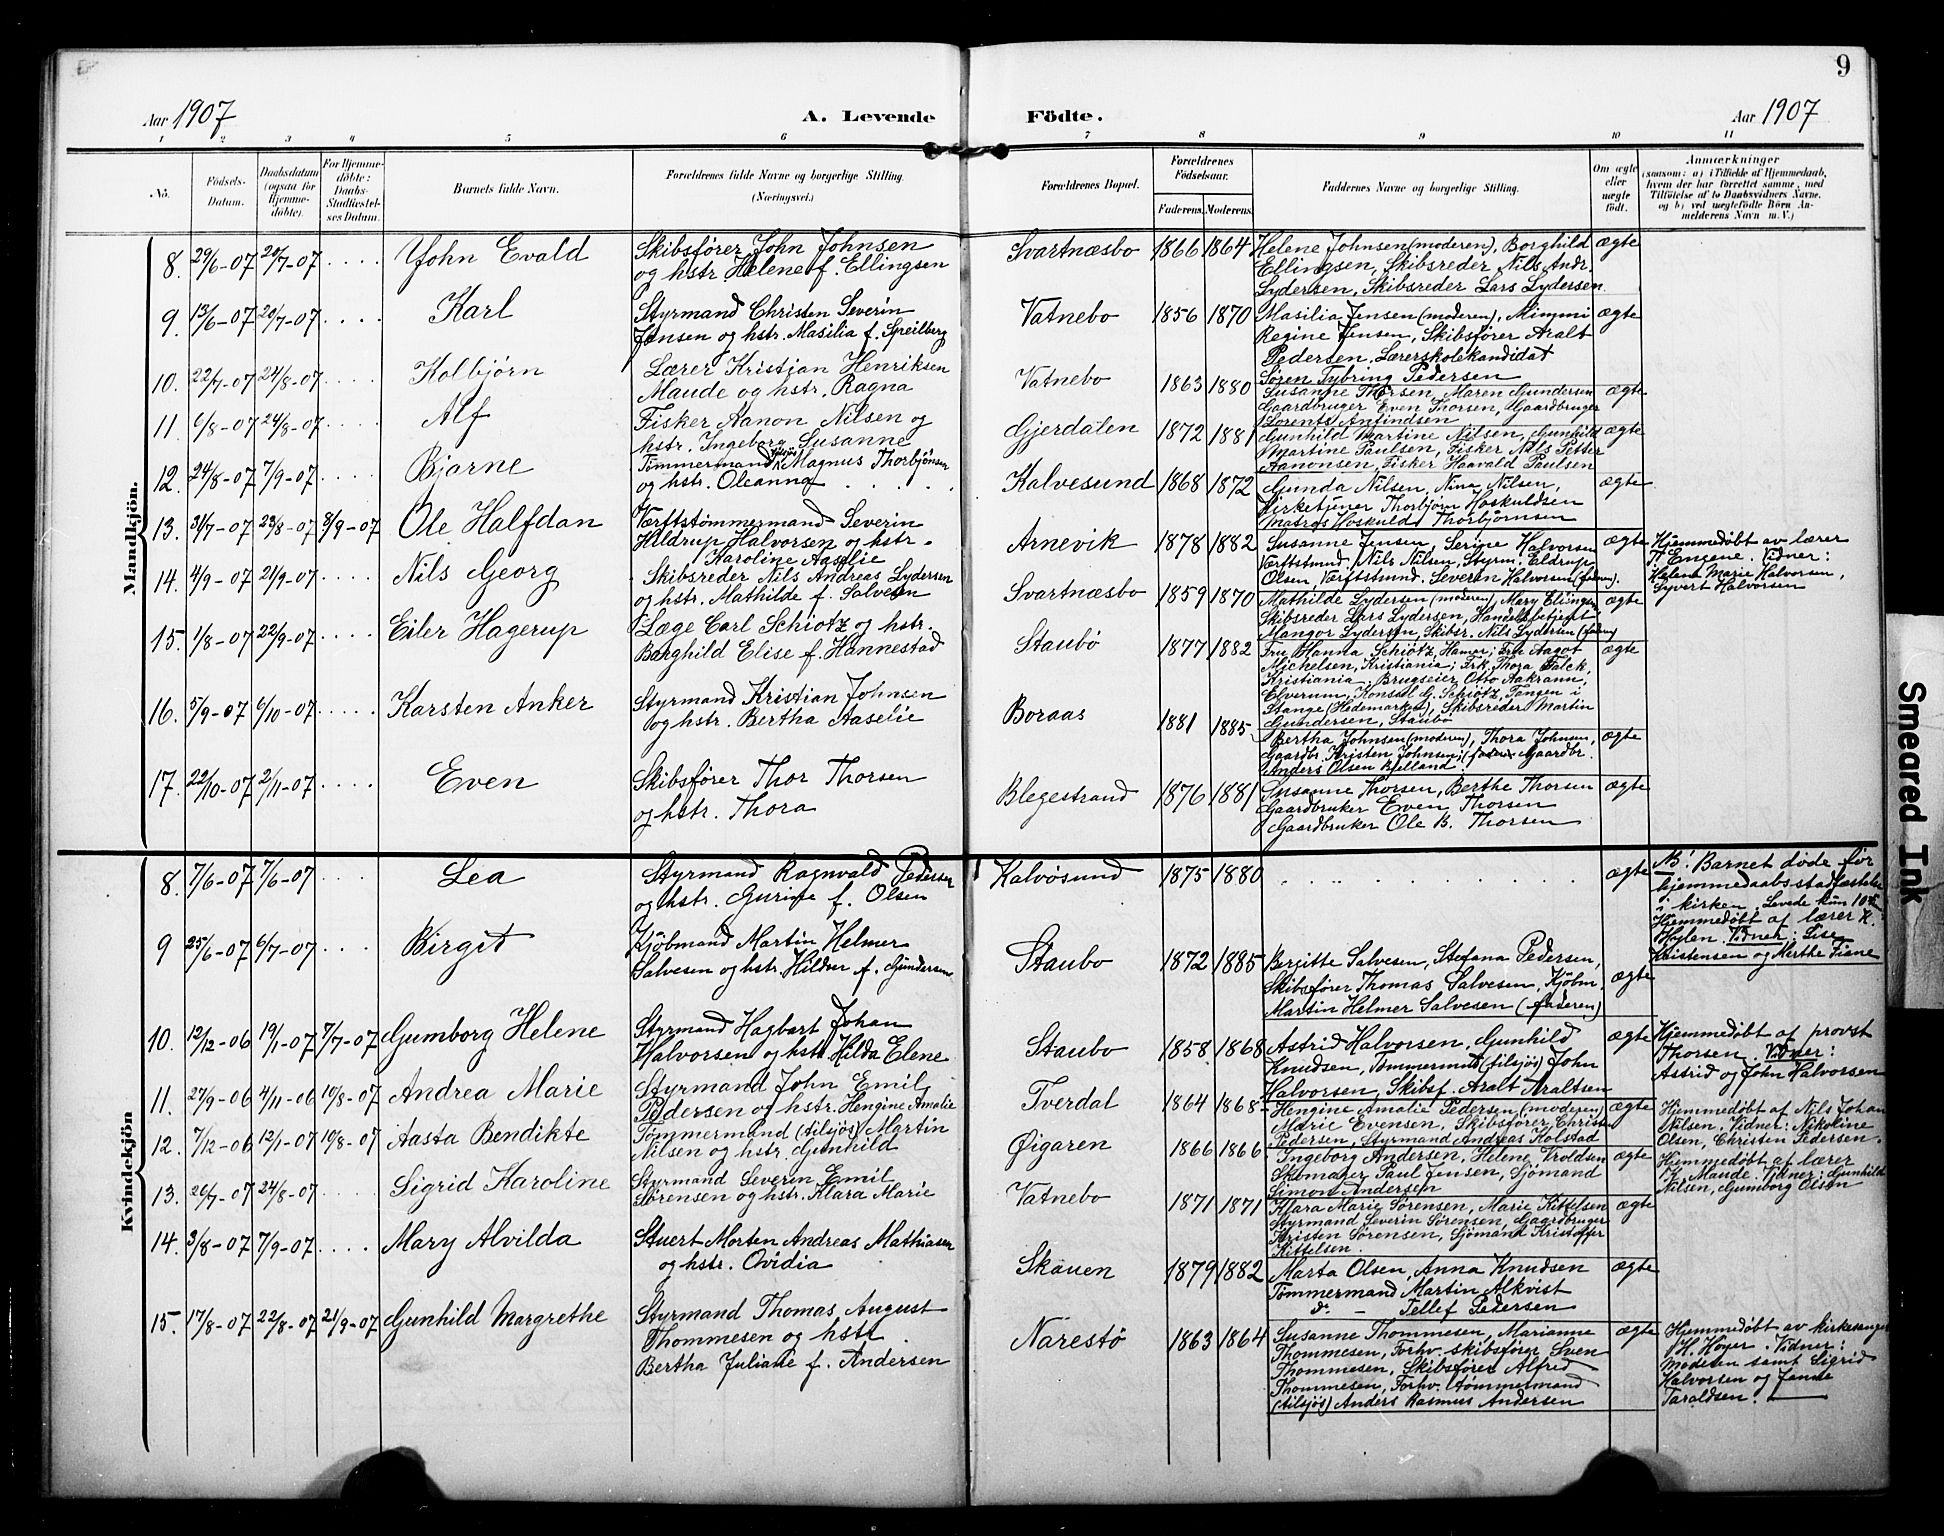 9
Aar 1907
A. Levende
Födte.
Aar 1907
1 2 3 4 5 6 7 8 9 10 11
No.
Födsels-
Datum.
Daabsdatum
(ogsaa for
Hjemme-
döbte).
For Hjemme-
döbte:
Daabs-
Stadfæstel-
ses Datum.
Barnets fulde Navn.
Forældrenes fulde Navne og borgerlige Stilling.
(Næringsvei.)
Forældrenes Bopæl.
Forældrenes
Födselsaar.
Faderens.
Moderens.
Faddernes Navne og borgerlige Stilling.
Om ægte
eller
uægte
födt.
Anmærkninger
(saasom: a) i Tilfælde af Hjemmedaab,
hvem der har forrettet samme, med
Tilföielse af to Daabsvidners Navne,
og b) ved uægtefödte Börn An-
melderens Navn m. V.)
Mandkjön.
8. 29/6-07 20/7-07 .... John Evald
Skibsfører John Johnsen
og hstr. Helene f. Ellingsen
Svartnæsbo 1866 1864
Helene Johnsen (moderen), Borghild
Ellingsen, Skibsreder Nils Andr.
Lydersen, Skibsreder Lars Lydersen
ægte
9. 13/6-07 20/7-07 .... Karl
Styrmand Christen Severin
Jensen og hstr. Masilia f. Speilberg
Vatnebo 1856 1870
Masilia Jensen (moderen), Mimmi
Regine Jensen, Skibsfører Aralt
Pedersen, Lærerskolekandidat
Søren Tybring Pedersen
ægte
10. 22/7-07 24/8-07 .... Kolbjørn
Lærer Kristian Henriksen
Maude og hstr. Ragna
Vatnebo 1863 1880
Susanne Thorsen, Maren Gundersen
Gaardbruger Even Thorsen, Gaardbruger
Lorents Anfindsen
ægte
11. 6/8-07 24/8-07 .... Alf
Fisker Aanon Nilsen og
hstr. Ingeborg Susanne
Gjerdalen 1872 1881
Gunhild Martine Nilsen, Gunhild
Martine Paulsen, Fisker Nils Petter
Aanonsen, Fisker Haavald Paulsen
ægte
12. 24/8-07 7/9-07 .... Bjarne
Tømmermand Magnus Thorbjønsen
og hstr. Oleanna
Kalvesund 1868 1872
Gunda Nilsen, Nina Nilsen,
Kirketjener Thorbjørn Hoskuldsen
Matros Hoskuld Thorbjørnsen
ægte
13. 31/7-07 23/8-07 8/9-07 Ole Halfdan
Værftstømmermand Severin
Hildrup Halvorsen og hstr.
Karoline Aaselie
Arnevik 1878 1882
Susanne Jensen, Serine Halvorsen
Værftstmd. Nils Nilsen, Styrm. Eldrup
Olsen Værftstmd. Severin Halvorsen (faderen).
ægte
Hjemmedøbt av lærer
T. Engene. Vidner:
Helene Marie Halvorsen,
Syvert Halvorsen
14. 4/9-07 21/9-07 .... Nils Georg
Skibsreder Nils Andreas Lydersen
og hstr. Mathilde f. Salvesen
Svartnæsbo 1859 1870
Mathilde Lydersen (moderen), Mary Ellingsen
Skibsreder Lars Lydersen, Handelsbetjent
Mangor Lydersen, Skibsr. Nils Lydersen (faderen)
ægte
15. 1/8-07 22/9-07 .... Eiler Hagerup
Læge Carl Schiøtz og hstr.
Borghild Elise f. Hannestad
Staubø 1877 1882
Fru Hanna Schiøtz, Hamar; Fru Aagot
Michelsen, Kristiania; Frk. Thora Falck,
Kristiania. Brugseier Otto Aakrann,
Elverum, Konsul G. Schiøtz, Tangen i
Stange (Hedemarken), Skibsreder Martin
Gundersen, Staubø
ægte
16. 5/9-07 6/10-07 .... Karsten Anker
Styrmand Kristian Johnsen
og hstr. Bertha Aaselie
Boraas 1881 1885
Bertha Johnsen (moderen), Thora Johnsen,
Gaardbr. Kristen Johnsen, Gaardbr.
Anders Olsen Bjelland
ægte
17. 22/10-07 2/11-07 .... Even
Skibsfører Thor Thorsen
og hstr. Thora
Blegestrand 1876 1881
Susanne Thorsen, Berthe Thorsen
Gaardbruker Even Thorsen
Gaardbruker Ole B. Thorsen
ægte
Kvindekjön
8. 7/6-07 7/6-07 .... Lea
Styrmand Ragnvald Pedersen
og hstr. Gurine f. Olsen
Kalvøsund 1875 1880
ægte
NB! Barnet døde før
hjemmedaabsstadfæstelse
i kirken. Levede kun
Hjemmedøbt af lærer K.
Høylen. Vidner: Lise
Kristensen og Merthe Fiane
9 25/6-07 6/7-07 ... Birgit
Kjøbmand Martin Helmer
Salvesen og hstr. Hildur f. Gundersen
Staubo 1872 1885
Bergitte Salvesen, Stefana Pedersen,
Skibsfører Thomas Salvesen, Kjøbm.
Martin Helmer Salvesen (faderen)
ægte
10. 12/12-06 19/1-07 7/7-07 Gumborg Helene
Styrmand Hagbart Johan
Halvorsen og hstr. Hilda Elene
Staubo 1858 1868
Astrid Halvorsen, Gunhild
Knudsen, Tømmermand (tilsjøs) John
Halvorsen, Skibsf. Aralt Araltsen
ægte
Hjemmedøbt af provst
Thorsen. Vidner:
Astrid og John Halvorsen
11. 27/9-06 4/11-06 10/8-07 Andrea Marie
Styrmand John Emil
Pedersen og hstr. Hengine Amalie
Tverdal 1864 1868
Hengine Amalie Pedersen (moderen)
Marie Evensen, Skibsfører Christen
Pedersen, Styrmand Andreas Kolstad
ægte
Hjemmedøbt af Nils Johan
Nilsen, Vidner: Nikoline
Olsen, Christen Pedersen.
12. 7/12-06 12/1-07 10/8-07 Aasta Bendikte
Tømmermand (tilsjøs) Martin
Nilsen og hstr. Gunhild
Øigaren 1866 1866
Ingeborg Andersen, Helene Vroldsen
Skomager Paul Jensen, Sjømand
Simon Andersen
ægte
Hjemmedøbt af lærer
K. Maude. Vidner: Gunhild
Nilsen, Gumborg Olsen
13. 26/7-07 24/8-07 .... Sigrid Karoline
Styrmand Severin Emil
Sørensen og hstr. Klara Marie
Vatnebo 1871 1871
Klara Marie Sørensen, Marie Kittelsen
Styrmand Severin Sørensen, Gaardbruger
Kristen Sørensen, Sjømand Kristoffer
Kittelsen.
ægte
14. 3/8-07 7/9-07 .... Mary Alvilda
Stuert Morten Andreas Mathiasen
og hstr. Ovidia
Skauen 1879 1882
Marta Olsen, Anna Knudsen
Tømmermand Martin Alkvist
do. - Tellef Pedersen
ægte
15. 17/8-07 22/8-07 21/9-07 Gunhild Margrethe
Styrmand Thomas August
Thommesen og hstr.
Bertha Juliane f. Andersen
Narestø 1863 1864
Susanne Thommesen, Marianne
Thommesen, Forhv. skibsfører Sven
Thommesen, Skibsfører Alfred
Thommesen, Forhv. tømmermand
(tilsjøs) Anders Rasmus Andersen
ægte
Hjemmedøbt av kirkesanger
H. Høyer. Vidner:
Moderen samt Sigrid
Halvorsen og
Taraldsen.
Smeared Ink